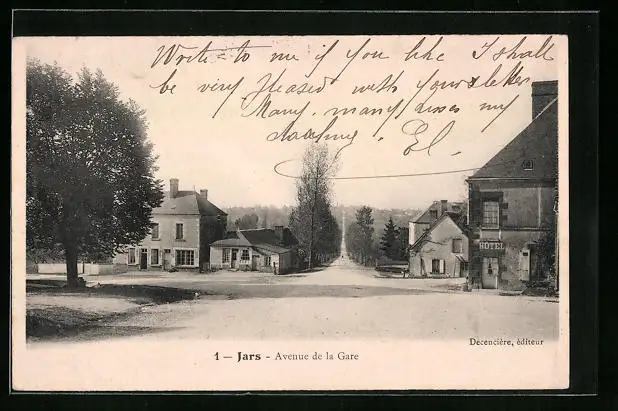 Write to me if you like I shall
be very pleased with your letter
Many, many kisses my
El.
HÔTEL
Decencière, éditeur
1 — Jars - Avenue de la Gare